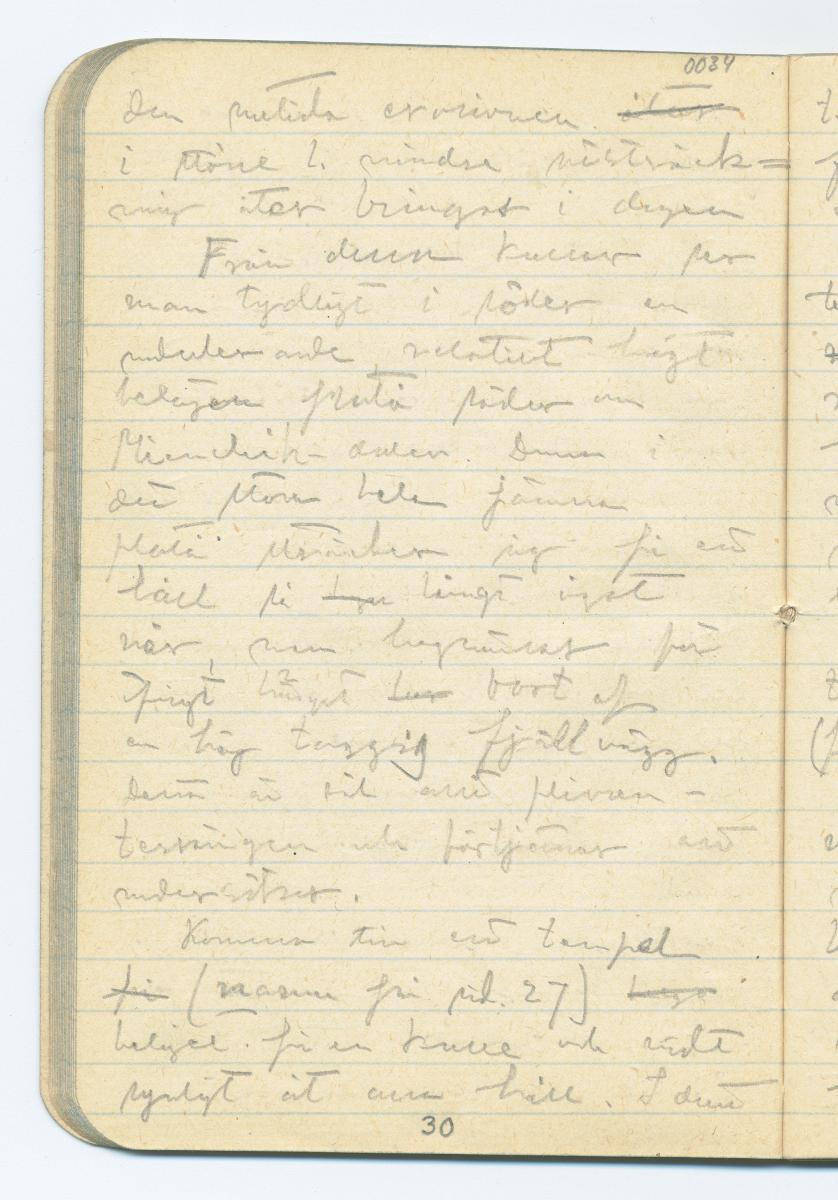 0034
Den nutida erosionen
i större l. mindre utsträck=
ning åter bringat i dagen
Från denna kulle ser
man tydligt i söder en
undulerande, relativt högt
belägen platå söder om
dalen. Denna i
det stora hela jämna
platå sträcker sig på ett
håll så långt ögat
når, men begränsas för
öfrigt långst bort af
en hög taggig fjällvägg.
Denna är väl
och förtjänar att
undersökas.
Komma till ett tempel
(från sid. 27)
beläget på en kulle och vidt
synligt åt alla håll. I detta
30